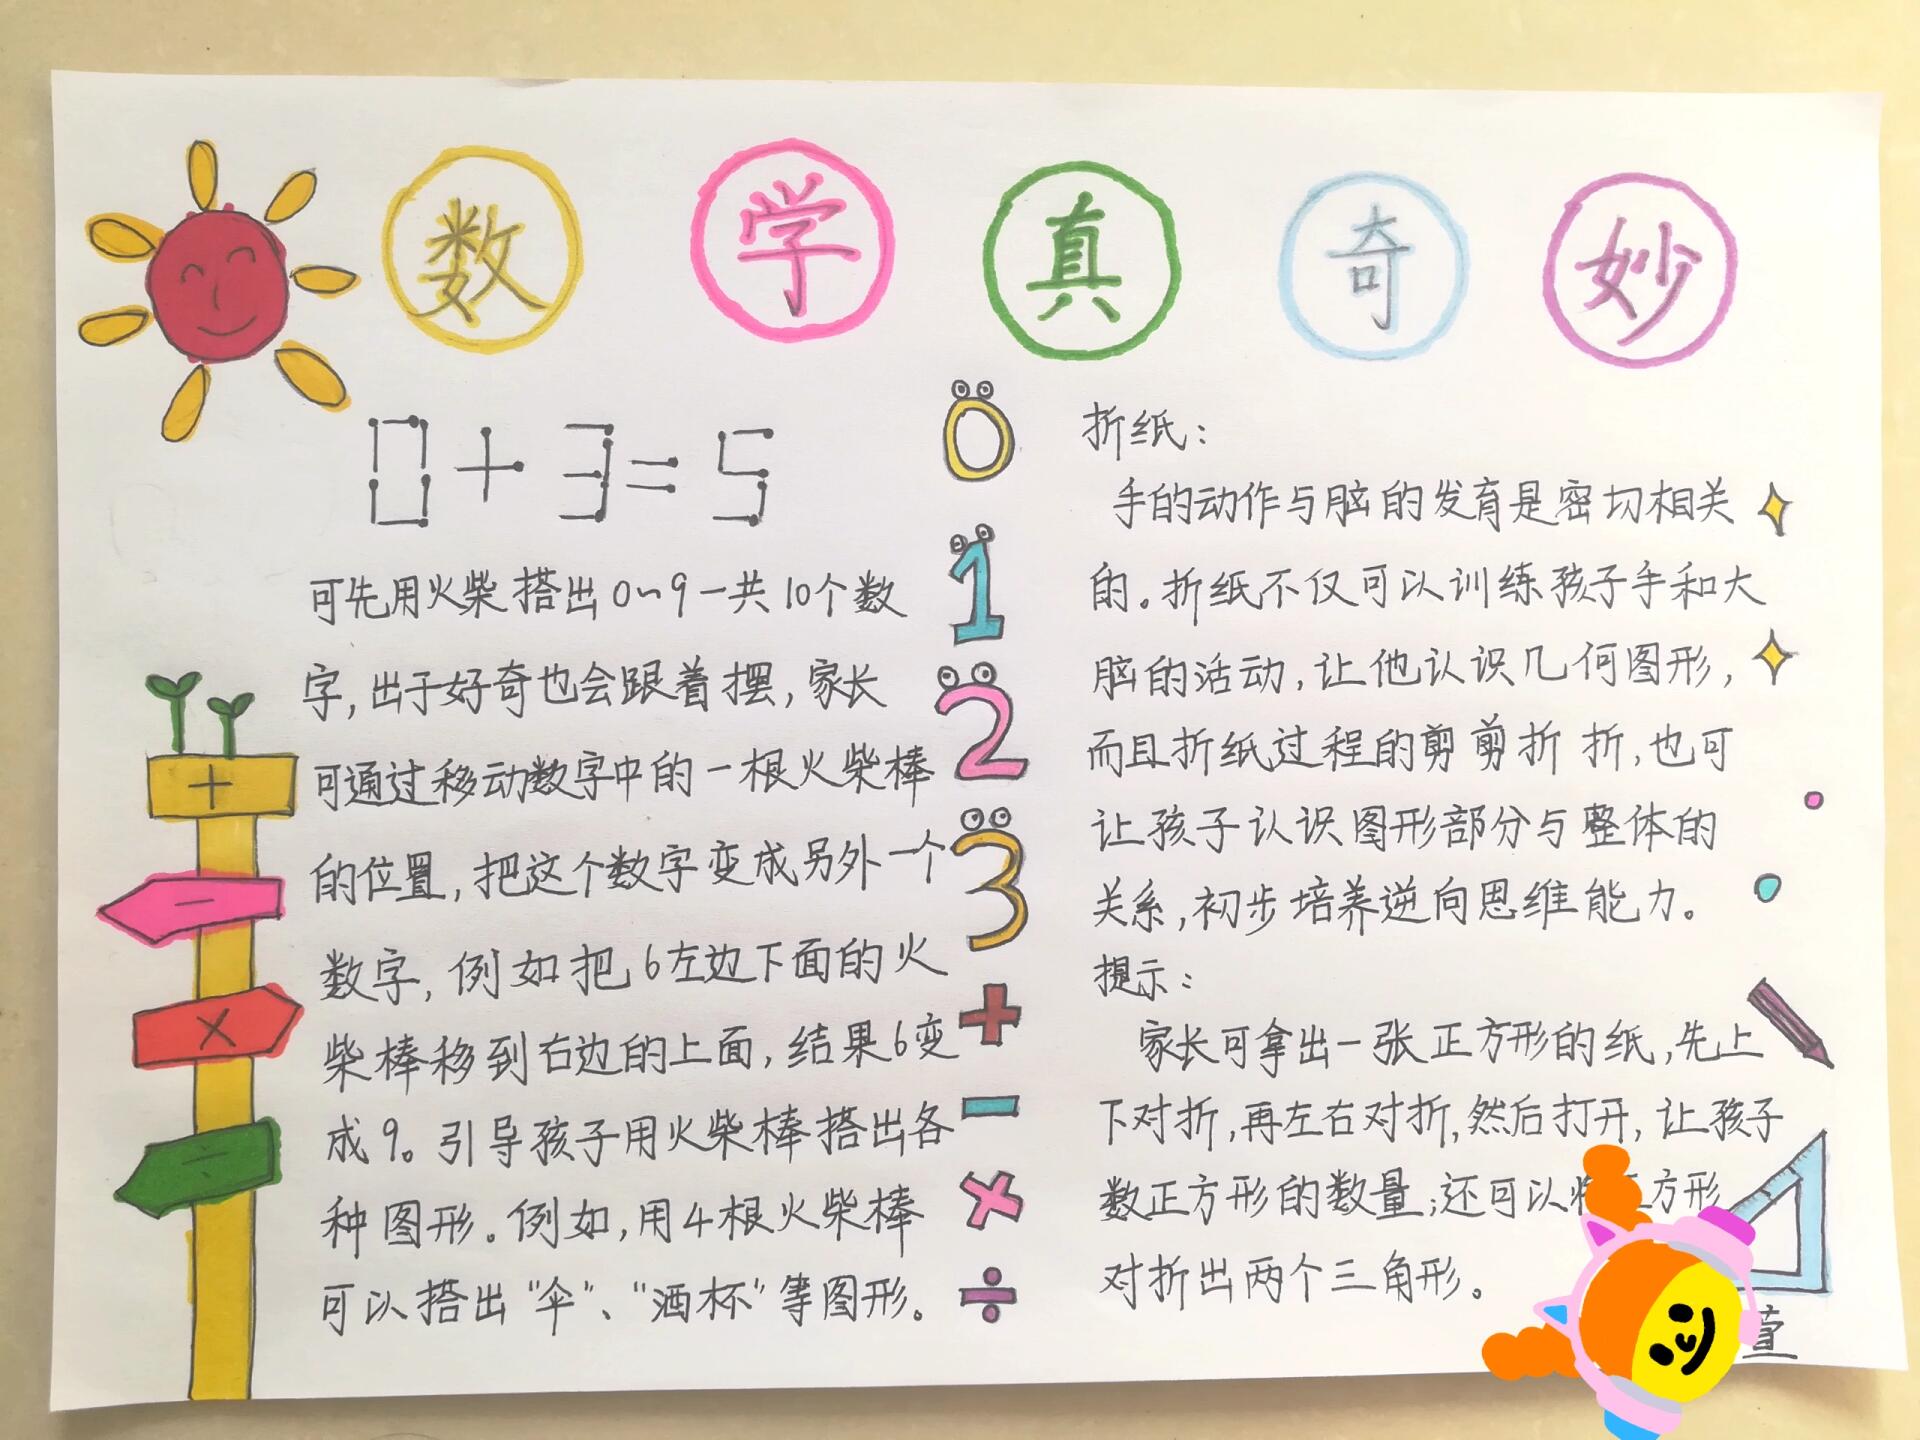 数学真奇妙
0+3=5
可先用火柴搭出0~9一共10个数
字,出于好奇也会跟着摆,家长
可通过移动数字中的一根火柴棒
的位置,把这个数字变成另外一个
数字,例如把6左边下面的火
柴棒移到右边的上面,结果6变
成9。引导孩子用火柴棒搭出各
种图形。例如,用4根火柴棒
可以搭出"伞"、"酒杯"等图形。
0
1
2
3
+
-
×
÷
折纸:
手的动作与脑的发育是密切相关
的。折纸不仅可以训练孩子手和大
脑的活动,让他认识几何图形,
而且折纸过程的剪剪折折,也可
让孩子认识图形部分与整体的
关系,初步培养逆向思维能力。
提示:
家长可拿出一张正方形的纸,先上
下对折,再左右对折,然后打开,让孩子
数正方形的数量;还可以将正方形
对折出两个三角形。
+
-
×
÷